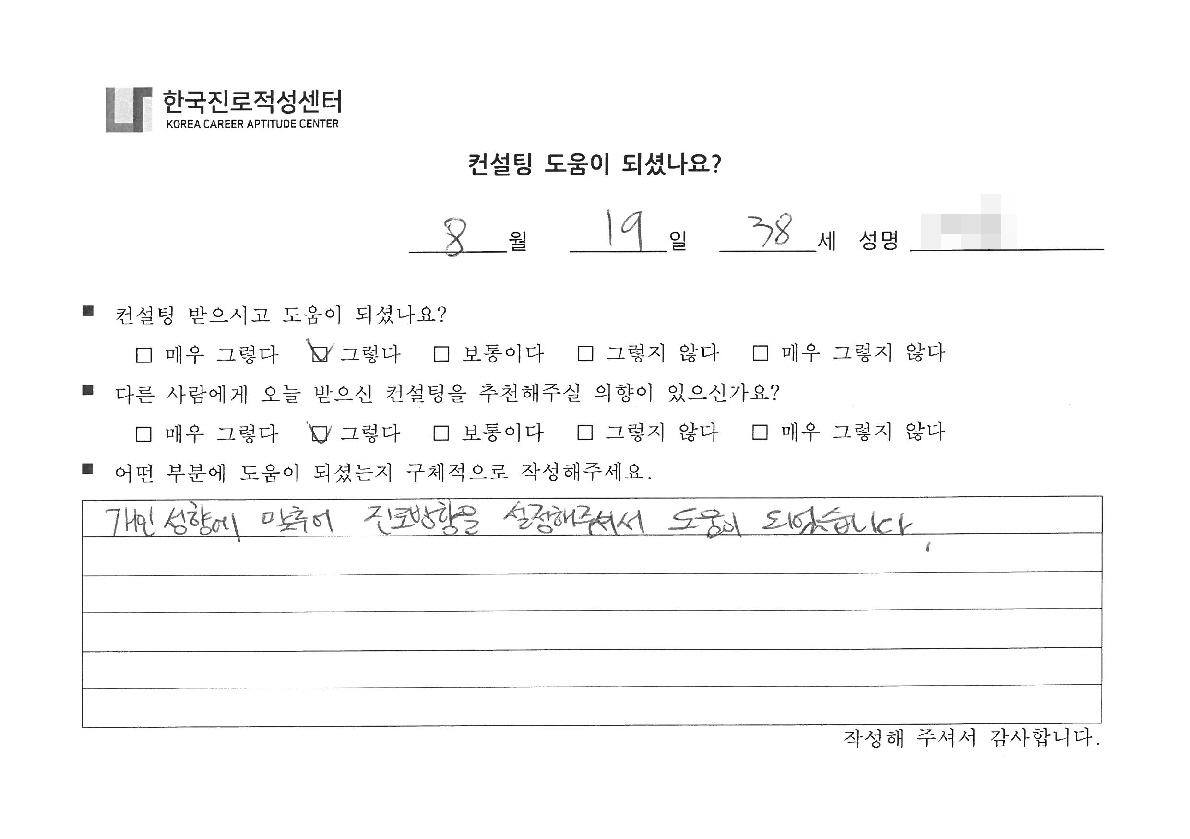 한국진로적성센터
KOREA CAREER APTITUDE CENTER
컨설팅 도움이 되셨나요?
8 월 19 일 38 세 성명
■ 컨설팅 받으시고 도움이 되셨나요?
□ 매우 그렇다 ☑ 그렇다 □ 보통이다 □ 그렇지 않다 □ 매우 그렇지 않다
■ 다른 사람에게 오늘 받으신 컨설팅을 추천해주실 의향이 있으신가요?
□ 매우 그렇다 ☑ 그렇다 □ 보통이다 □ 그렇지 않다 □ 매우 그렇지 않다
■ 어떤 부분에 도움이 되셨는지 구체적으로 작성해주세요.
개인 성향에 맞추어 진로방향을 설정해주셔서 도움이 되었습니다.
작성해 주셔서 감사합니다.